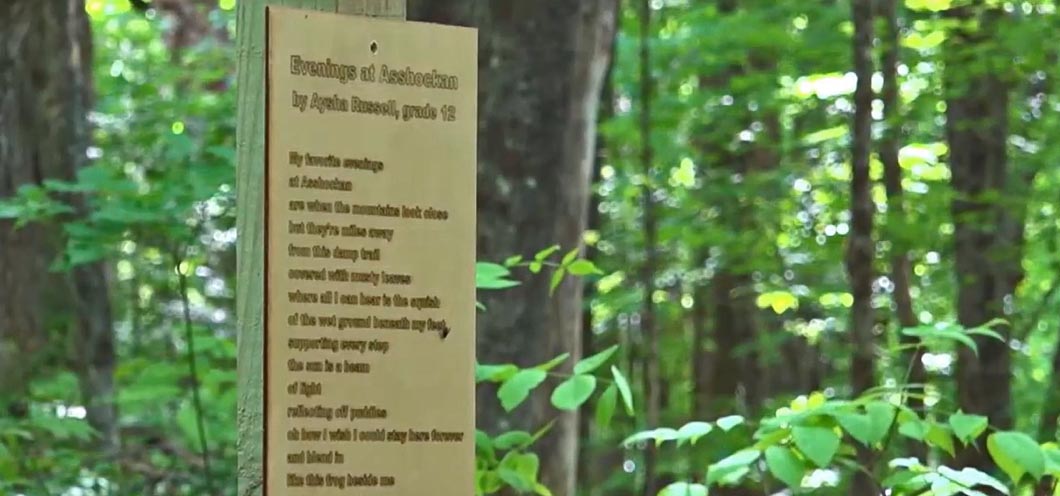 Evenings at Asshockan
by Aysha Russell, grade 12
My favorite evenings
at Asshockan
are when the mountains look close
but they're miles away
from this damp trail
covered with musty leaves
where all I can hear is the squish
of the wet ground beneath my feet
supporting every step
the sun is a beam
of light
reflecting off puddles
oh how I wish I could stay here forever
and blend in
like this frog beside me